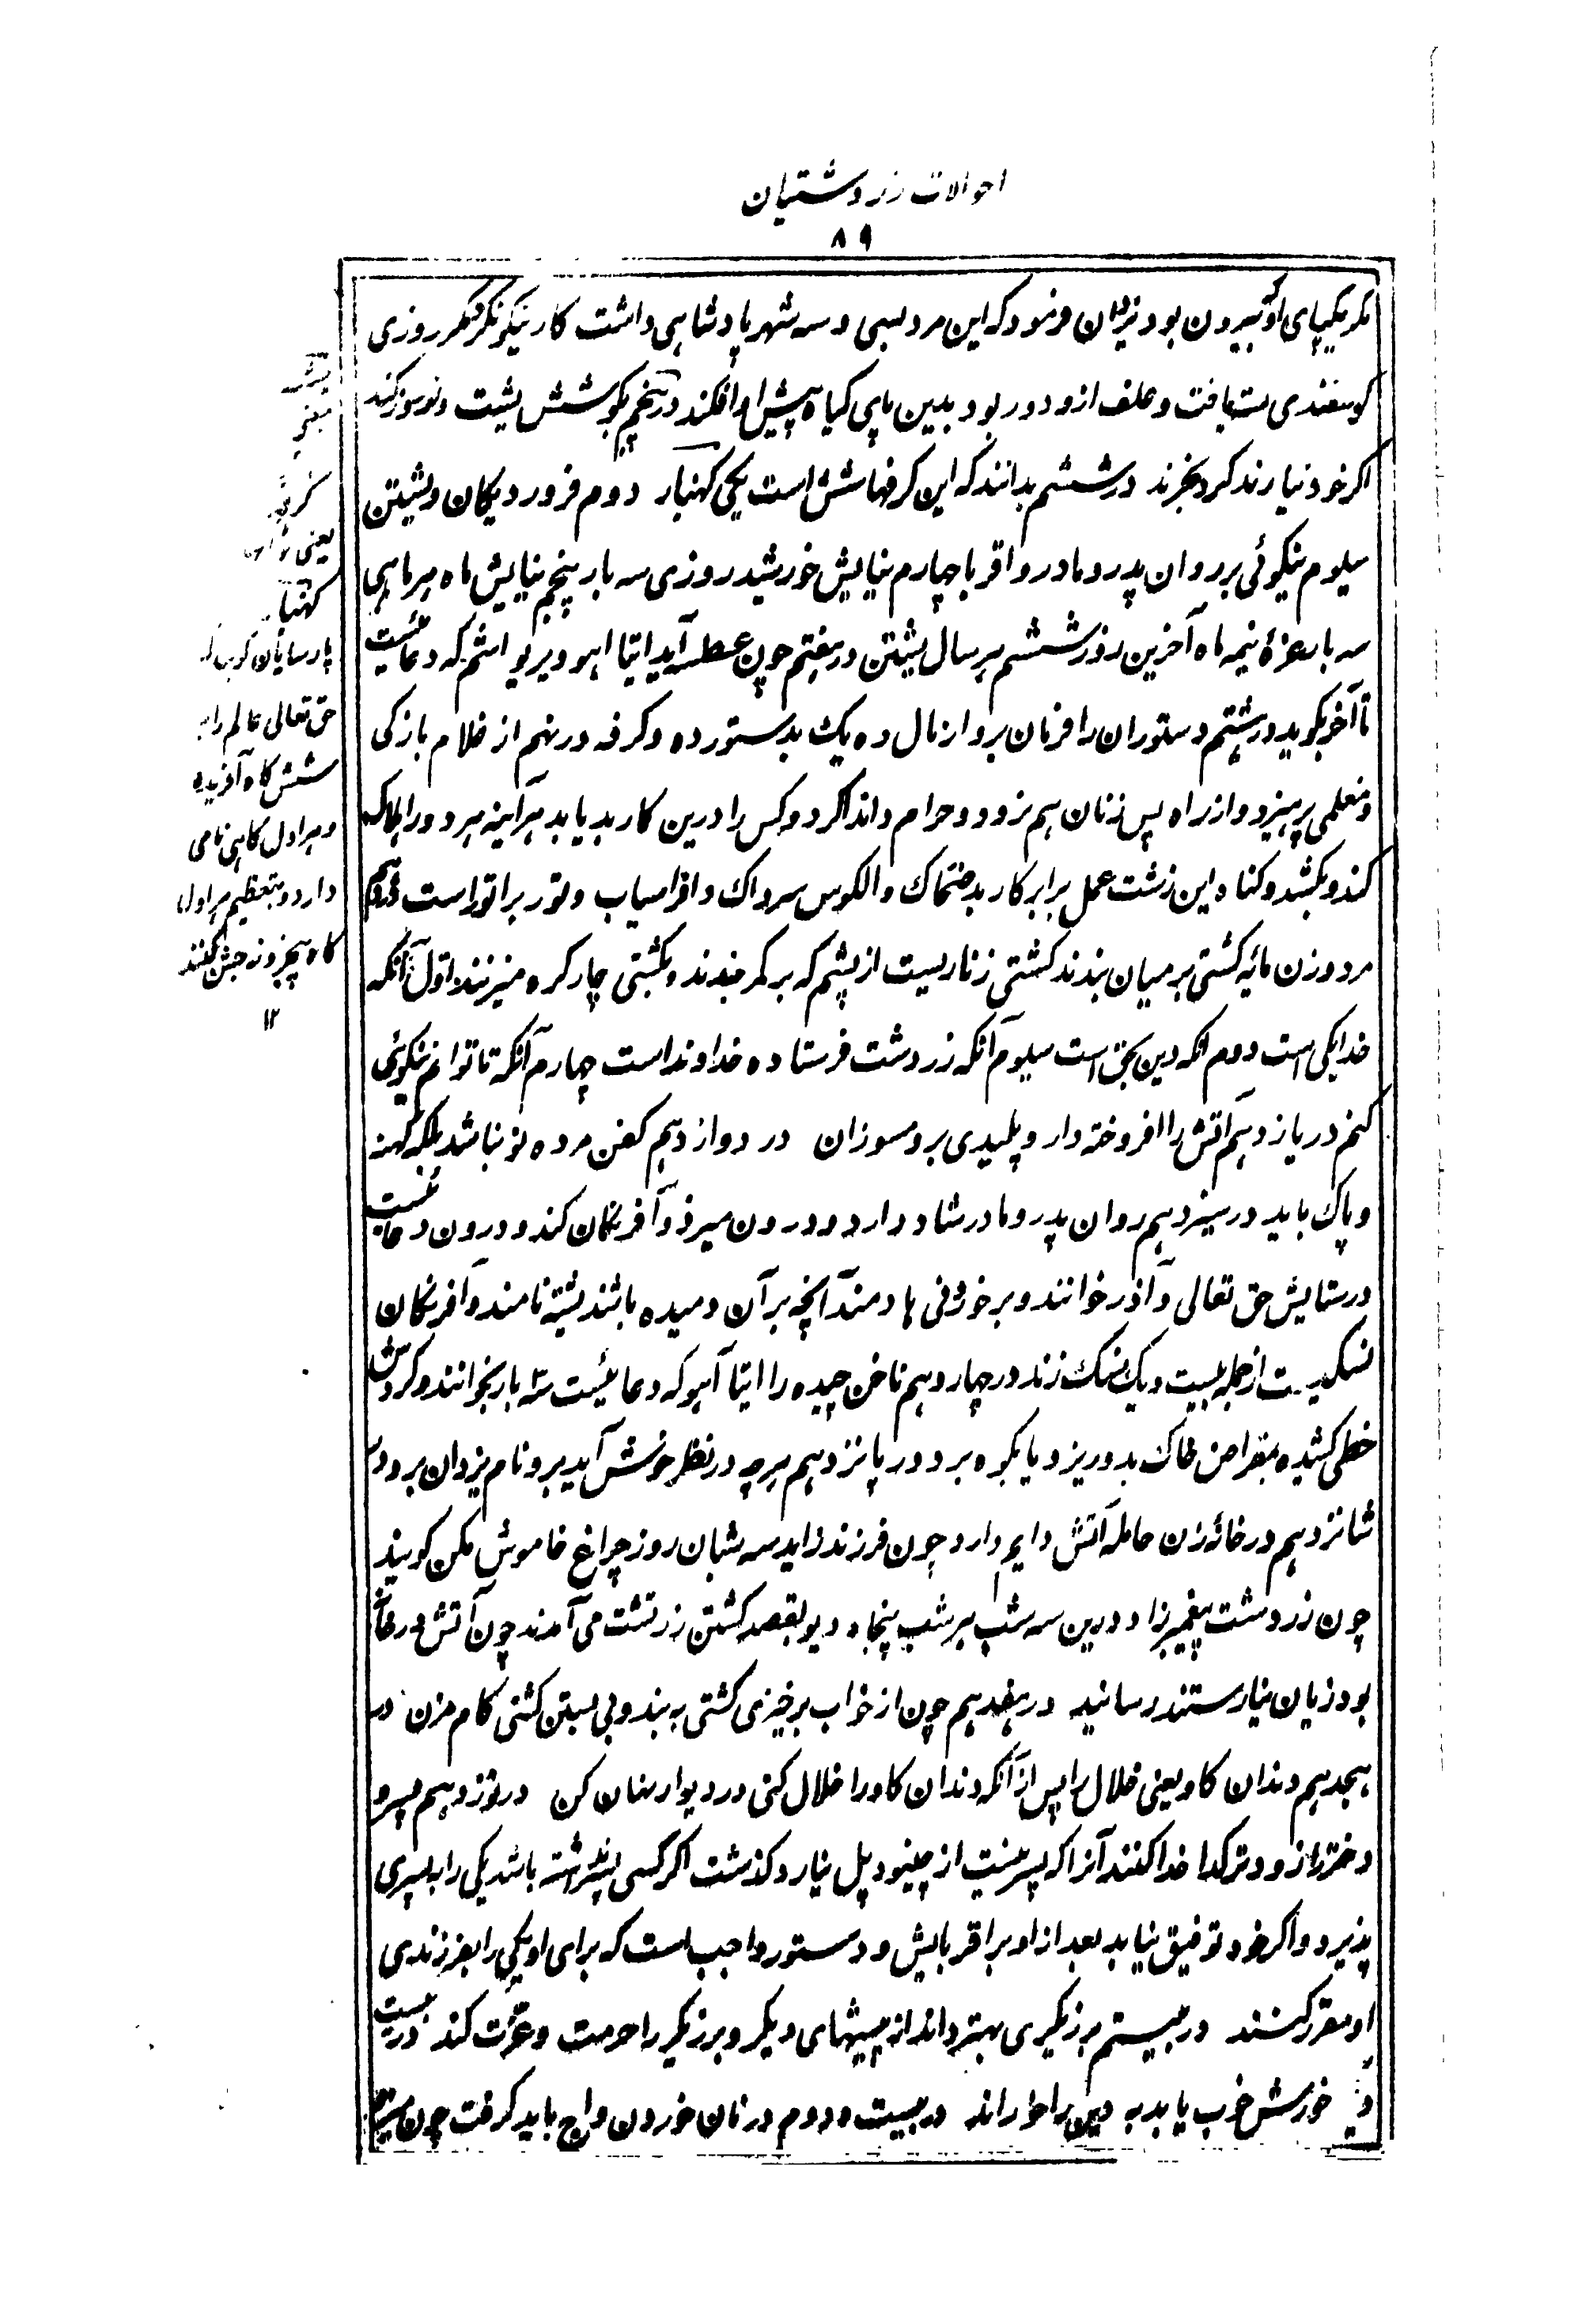 احوالات زردشتیان
۸۹
مکر یکپای او بیرون بود یزدان فرمود که این مرد سی و سه شهر پادشاهی داشت کار نیکو نکرد مکر روزی
کوسفندی بسته یافت و علف ازو دور بود بدین پای کیاه پیش او افکند در پنجم بکوشش یشت و نوروز کند
اکر خود نیارند کرد بخرند در ششم بدانند که این کرفها شش است یکی کهنبار دوم فروردیکان و یشتن
سیوم نیکوئی بر روان پدر و مادر و اقربا چهارم نیایش خورشید روزی سه بار پنجم نیایش ماه هر ماهی
سه بار غرهٔ نیمه ماه آخرین روز ششم هر سال یشتن در هفتم چون عطسه آید ایتا اهو ویریو اشم که دعائیست
تا آخر بکوید در هشتم دستوران را فرمان برد از مال ده یک بدستور ده و کرفه در نهم از غلام بازکی
و مغلمی پرهیزد و از راه پس زنان هم نرود و حرام داند اکر دو کس را درین کار بد یابد هر آینه هر دو را هلاک
کند و بکشد و کناه این زشت عمل برابر کار بد ضحاک و الکوس سرداک و افراسیاب و تور براتور است در دهم
مرد و زن مائیه کشتی بر میان بندند کشتی زناریست از پشم که بر کمر بندند و بکشتی چار کره میزنند اول آنکه
خدا یکی است دوم آنکه دین بحق است سیوم آنکه زردشت فرستاده خداوند است چهارم آنکه تا توانم نیکوئی
کنم در یازدهم آتش را افروخته دار و پلیدی برو مسوزان در دوازدهم کفن مرده نو نباشد بلکه کهنه
و پاک باید در سیزدهم روان پدر و مادر شاد دارد و درون میزد و آفرینکان کند و درون دعائیست
در ستایش حق تعالی و آذر خوانند و بر خوردنی ها دمند آنچه بر آن دمیده باشند یشته نامند و آفرینکان
نسکیست از جمله بیست و یک نسک زند در چهاردهم ناخن چیده را ایتا آهو که دعائیست سه بار بخوانند و کردش
خطی کشیده بمقراض خاک بدو ریزد یا بکوه برد در پانزدهم هر چه در نظر خوش آید برو نام یزدان برد در
شانزدهم در خانه زن حامله آتش دایم دارد چون فرزند زاید سه شبان روز چراغ خاموش مکن کویند
چون زردشت پیغمبر زاد درین سه شب هر شب پنجاه دیو بقصد کشتن زرتشت می آمدند چون آتش در خانه
بود زیان نیارستند رسانید در هفدهم چون از خواب برخیزی کشتی به بند و بی بستن کشتی کام مزن در
هیجدهم دندان کاو یعنی خلال را پس از آنکه دندان کاو را خلال کنی در دیوار پنهان کن در نوزدهم پسر و
دختر را زودتر کدخدا کنند آنرا که پسر نیست از چینود پل نیارد کذشت اکر کسی پسر نداشته باشد یکی را بپسری
پذیرد و اکر خود توفیق نیابد بعد از او بر اقربایش و دستور واجب است که برای او یکی را بفرزندی
او مقرر کنند در بیستم برزیکری بهتر داند از پیشهای دیکر و برزیکر را حرمت و عزت کند در بیست
و خورش خوب یابد به دین را خوراند در بیست و دوم در نان خوردن واج باید کرفت چون
یعنی
کهنبار
پارسایان کویند
حق تعالی عالم را به
شش کاه آفریده
و هر اول کاهی نامی
دارد و بتعظیم هر اول
کاه پنجروزه جشن کنند
۱۲